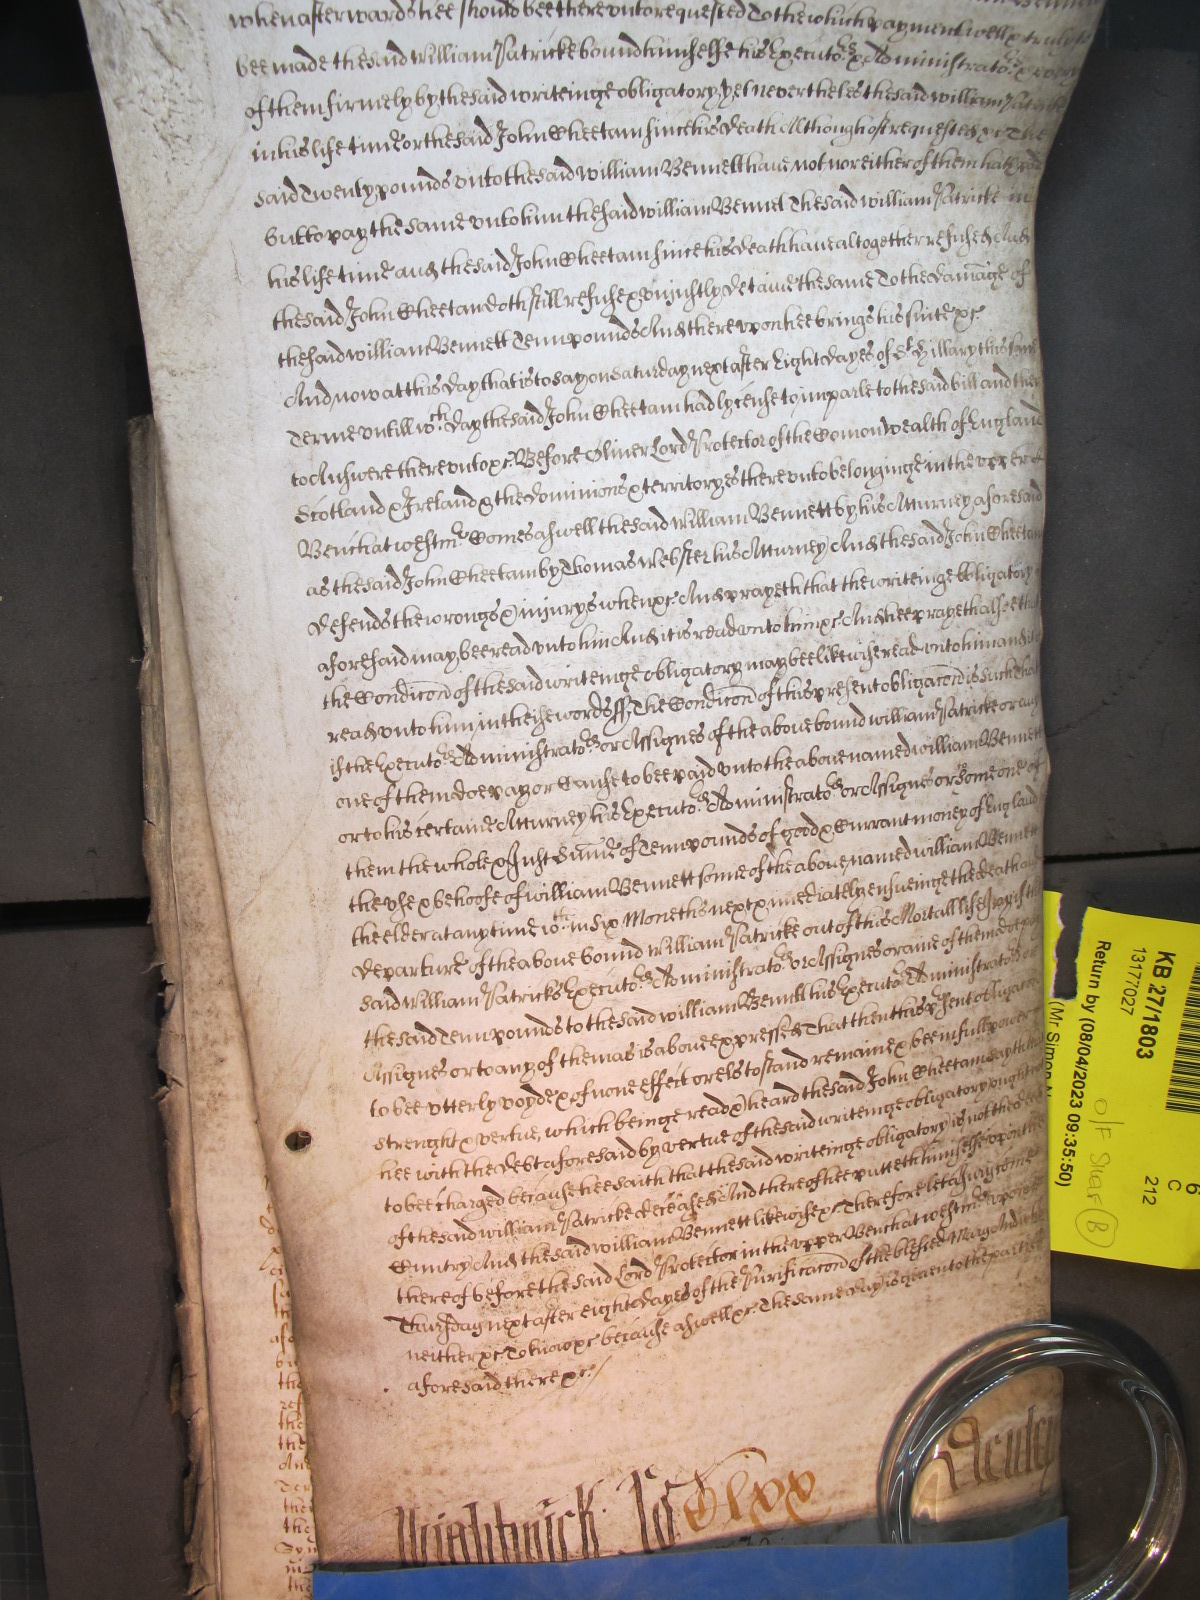 when afterwards hee should bee there unto requested To the which payment well & truly to
bee made the said William Patricke bound himselfe his Executo.rs & Administrato.rs & every
of them firmely by the said writeinge obligatory, yet nevertheles the said William Patricke
in his life time or the said John Cheetam since his death Although oft requested &c The
said Twenty pounds unto the said William Bennett have not nor either of them hath paid
but to pay the same unto him the said William Bennet The said William Patricke in
his life time and the said John Cheetam since his death have altogether refused And
the said John Cheetam doth still refuse & uniustly detaine the same To the damage of
the said William Bennett Tenn pounds And there upon hee brings his suite &c
And now at this day that is to say on Saturday next after Eight dayes of S.t Hillary this same
Terme untill w.ch day the said John Cheetam had lycense to imparle to the said bill and then
to Answere there unto &c Before Oliver Lord Protector of the Comon Wealth of England
Scotland & Ireland & the dominions & territoryes there unto belonginge in the upper
Bench at Westm.r Comes aswell the said William Bennett by his Atturney aforesaid
as the said John Cheetam by Thomas Webster his Atturney And the said John Cheetam
defends the wrongs & iniurys when &c And prayeth that the writeinge obligatory
aforesaid may bee read unto him And it is read unto him &c And hee prayeth alsoe that
the Condicon of the said writeinge obligatory may bee likewise read unto him and it is
read unto him in these words ss The Condicon of this present obligacon is such That
if the Executo.rs Administrato.rs or Assignes of the above bound William Patricke or any
one of them doe pay or Cause to bee paid unto the above named William Bennett
or to his certaine Atturney his Executo.rs Administrato.rs or Assignes or some one of
them the whole & Just Sume of Tenn pounds of good & Currant money of England
the use & behoofe of William Bennett sonne of the above named William Bennett
the elder at any time w.th in six Moneths next & imediately ensueinge the death and
departure of the above bound William Patricke out of this Mortall life If
said William Patricks Executo.rs Administrato.rs or Assignes or anie of them doe pay
the said Tenn pounds to the said William Bennett his Executo.rs Administrato.rs or
Assignes or to any of them as is above expressed That then this p.sent obligacon
to bee utterly voyde & of none effect or els to stand remaine & bee in full power
strenght & vertue, which beinge read & heard the said John Cheetam sayth that
hee with the debt aforesaid by vertue of the said writeinge obligatory ought not
to bee charged because hee saith that the said writeinge obligatory is not the deed
of the said William Patricke deceased And thereof hee putteth himselfe upon the
Cuntry And the said William Bennett likewise &c Therefore let a Jury come
thereof before the said Lord Protector in the upper Bench at Westm.r upon
Thursday next after eight dayes of the Purificacon of the blessed Mary And who
neither &c To know &c because aswell &c The same day is given to the parties
aforesaid there &c
KB 27/1803
13177027
Return by (08/04/2023 09:35:50)
6
C
212
O/F Shelf B